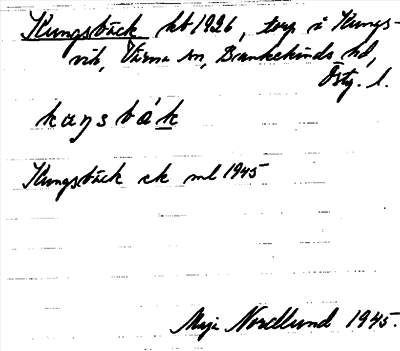 Kungsbäck kb 1926, torp å Kungs-
vik, Värna sn, Bankekinds hd,
Östg. l.
kaŋsbä́k
Kungsbäck ek ml 1945
Maja Nordlund 1945.